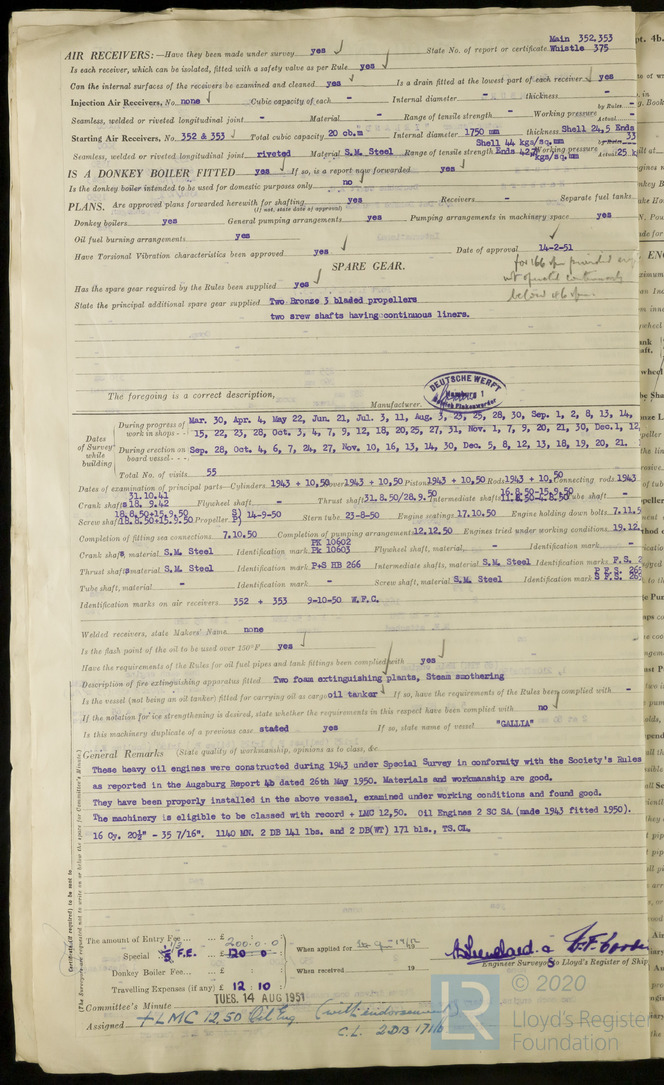 Main 352.353
AIR RECEIVERS:—Have they been made under survey yes State No. of report or certificate Whistle 375
Is each receiver, which can be isolated, fitted with a safety valve as per Rule yes
Can the internal surfaces of the receivers be examined and cleaned yes Is a drain fitted at the lowest part of each receiver yes
Injection Air Receivers, No. none Cubic capacity of each - Internal diameter - thickness -
Seamless, welded or riveted longitudinal joint - Material - Range of tensile strength - Working pressure by Rules - Actual -
Starting Air Receivers, No. 352 & 353 Total cubic capacity 20 cb.m Internal diameter 1750 mm thickness Shell 24,5 Ends 33
Shell 44 kgs/sq.mm
Seamless, welded or riveted longitudinal joint riveted Material S.M. Steel Range of tensile strength Ends 42,7 kgs/sq.mm Working pressure by Rules - Actual 25 k
IS A DONKEY BOILER FITTED yes If so, is a report now forwarded yes
Is the donkey boiler intended to be used for domestic purposes only no
PLANS. Are approved plans forwarded herewith for shafting yes Receivers - Separate fuel tanks
(If not, state date of approval)
Donkey boilers yes General pumping arrangements yes Pumping arrangements in machinery space yes
Oil fuel burning arrangements yes
Have Torsional Vibration characteristics been approved yes Date of approval 14-2-51
for 166 provided
not operated continuously
below
SPARE GEAR.
Has the spare gear required by the Rules been supplied yes
State the principal additional spare gear supplied Two Bronze 3 bladed propellers
two srew shafts having continuous liners.
The foregoing is a correct description,
Manufacturer.
DEUTSCHE WERFT
Hamburg 1
Dates of Survey while building
During progress of work in shops - - Mar. 30, Apr. 4, May 22, Jun. 21, Jul. 3, 11, Aug. 3, 23, 25, 28, 30, Sep. 1, 2, 8, 13, 14,
15, 22, 23, 28, Oct. 3, 4, 7, 9, 12, 18, 20,25, 27, 31, Nov. 1, 7, 9, 20, 21, 30, Dec.1, 12,
During erection on board vessel- - - Sep. 28, Oct. 4, 6, 7, 24, 27, Nov. 10, 16, 13, 14, 30, Dec. 5, 8, 12, 13, 18, 19, 20, 21.
Total No. of visits 55
Dates of examination of principal parts—Cylinders 1943 + 10,50 Covers 1943 + 10,50 Pistons 1943 + 10,50 Rods 1943 + 10,50 Connecting rods 1943
Crank shafts 31.10.41 18. 9.42 Flywheel shaft - Thrust shaft 31.8.50/28.9.50 Intermediate shafts 16.8.50-15.9.50 11.8.50-2.8.50 Tube shaft -
Screw shaft 18.8.50+15.9.50 18.8.50+15.9.50 Propeller S) P) 14-9-50 Stern tube 23-8-50 Engine seatings 17.10.50 Engine holding down bolts 7.11.5
Completion of fitting sea connections 7.10.50 Completion of pumping arrangements 12.12.50 Engines tried under working conditions 19.12.
Crank shafts, material S.M. Steel Identification mark PK 10602 Pk 10603 Flywheel shaft, material - Identification mark -
Thrust shafts material S.M. Steel Identification mark P+S HB 266 Intermediate shafts, material S.M. Steel Identification marks F.S.
Tube shaft, material - Identification mark - Screw shaft, material S.M. Steel Identification mark P F.S. 265 S F.S. 265
Identification marks on air receivers 352 + 353 9-10-50 W.F.C.
Welded receivers, state Makers' Name none
Is the flash point of the oil to be used over 150°F. yes
Have the requirements of the Rules for oil fuel pipes and tank fittings been complied with yes
Description of fire extinguishing apparatus fitted Two foam extinguishing plants, Steam smothering
Is the vessel (not being an oil tanker) fitted for carrying oil as cargo oil tanker If so, have the requirements of the Rules been complied with -
If the notation for ice strengthening is desired, state whether the requirements in this respect have been complied with no
Is this machinery duplicate of a previous case stated yes If so, state name of vessel "GALLIA"
General Remarks (State quality of workmanship, opinions as to class, &c.
These heavy oil engines were constructed during 1943 under Special Survey in conformity with the Society's Rules
as reported in the Augsburg Report 4b dated 26th May 1950. Materials and workmanship are good.
They have been properly installed in the above vessel, examined under working conditions and found good.
The machinery is eligible to be classed with record + LMC 12,50. Oil Engines 2 SC SA (made 1943 fitted 1950).
16 Cy. 20½" - 35 7/16". 1140 MN. 2 DB 141 lbs. and 2 DB(WT) 171 bls., TS.CL.
(The Surveyors are requested not to write on or below the space for Committee's Minute.)
Certificate (if required) to be sent to
The amount of Entry Fee ... £ 200.0.0
Special 1/3 F.E. ... £ 120 0
Donkey Boiler Fee... ... £ : :
Travelling Expenses (if any) £ 12 : 10 :
When applied for 19
When received 19
Engineer Surveyors to Lloyd's Register of Ship
TUES. 14 AUG 1951
Committee's Minute
Assigned + LMC 12.50 Oil Eng. (with endorsement)
C.L. 2DB 171 lb
LR
© 2020
Lloyd's Register
Foundation